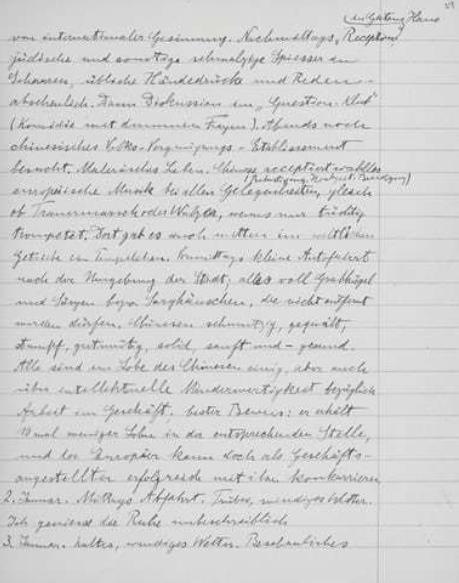 im Gubbay Haus
von internationaler Gesinnung. Nachmittags „Reception"
jüdische und sonstige schmalzige Spiesser in
Scharen, übliche Händedrücke und Reden –
abscheulich. Dann Diskussion im „Question-Klub"
(Komödie mit dummen Fragen). Abends noch
chinesisches Volks-Vergnügungs-Etablissement
besucht. Malerisches Leben. Chinese receptiert wahllos
europäische Musik bei allen Gelegenheiten, gleich
ob Trauermarsch oder Walzer, wenns nur tüchtig
trompetet. Dort gab es auch mitten im weltlichen
Getriebe ein Tempelchen. Vormittags kleine Autofahrt
nach der Umgebung der Stadt; alles voll Grabhügel
und Särgen bezw. Sarghäuschen, die nicht entfernt
werden dürfen. Chinesen schmutzig, gequält,
stumpf, gutmütig, solid, sanft und – gesund.
Alle sind im Lobe des Chinesen einig, aber auch
über intellektuelle Minderwertigkeit bezüglich
Arbeit im Geschäft; bester Beweis: er erhält
10 mal weniger Lohn in der entsprechenden Stelle,
und der Europäer kann doch als Geschäfts-
angestellter erfolgreich mit ihm konkurrieren
2. Januar. Abfahrt. Trübes, windiges Wetter.
Ich geniesse die Ruhe unbeschreiblich
3. Januar. kaltes, windiges Wetter. Beschauliches